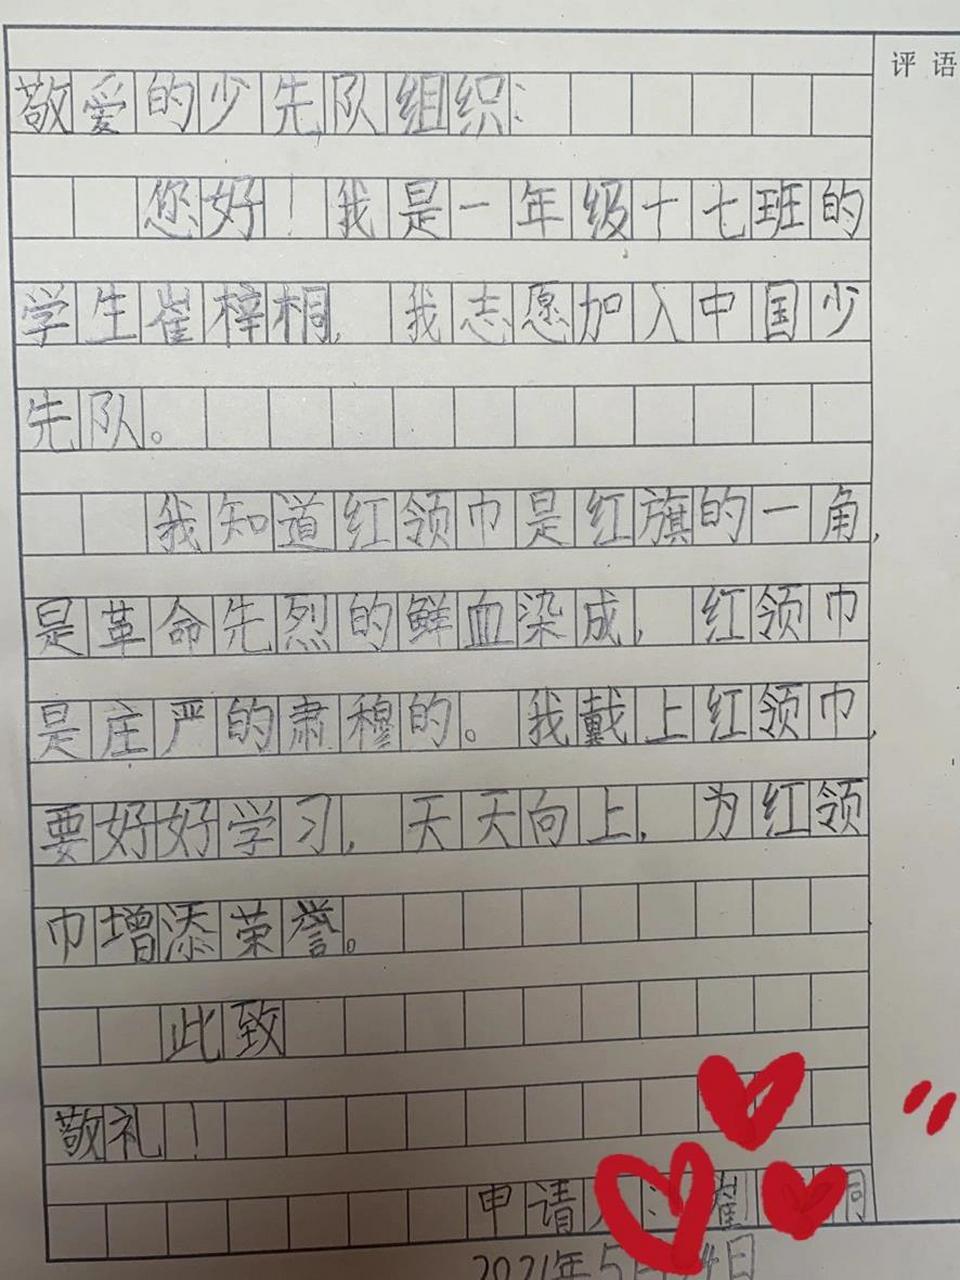 评语
敬爱的少先队组织:
您好！我是一年级十七班的
学生崔梓桐，我志愿加入中国少
先队。
我知道红领巾是红旗的一角，
是革命先烈的鲜血染成，红领巾
是庄严的肃穆的。我戴上红领巾，
要好好学习，天天向上，为红领
巾增添荣誉。
此致
敬礼！
申请人:崔 桐
2021年5月 4日